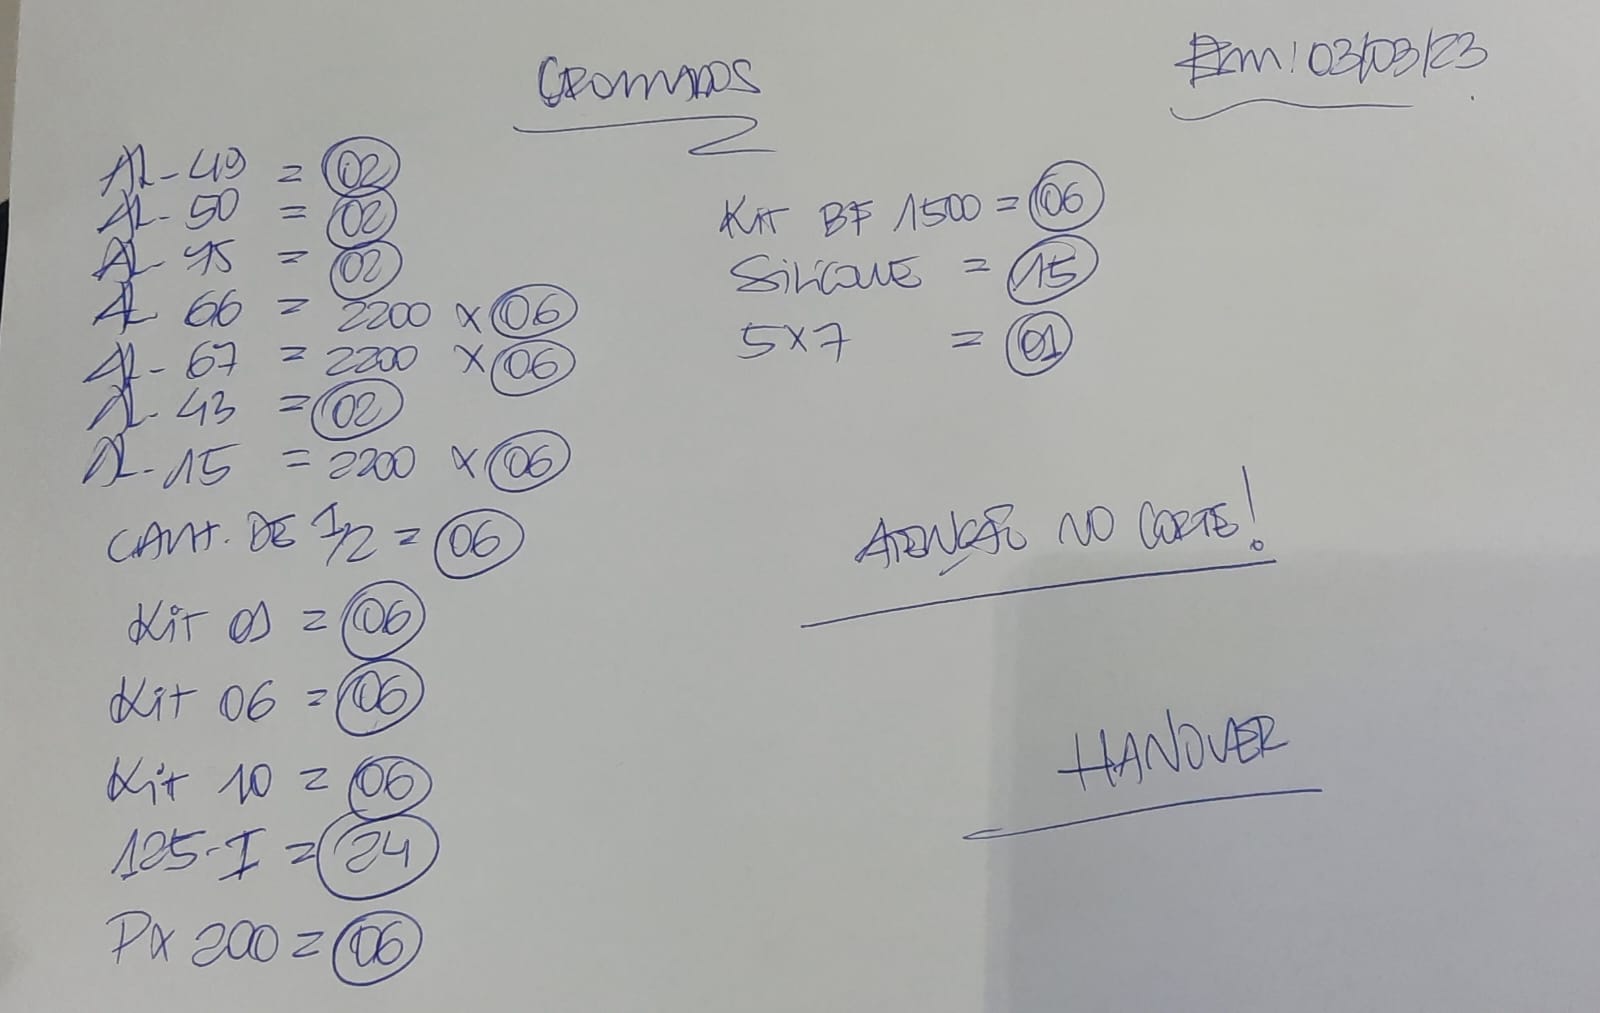 CROMADOS
Em: 03/03/23
AL-49 = 02
AL-50 = 02
AL-45 = 02
AL 66 = 2200 x 06
AL-67 = 2200 x 06
AL-43 = 02
AL-15 = 2200 x 06
CANT. DE 1/2 = 06
Kit 01 = 06
Kit 06 = 06
Kit 10 = 06
125-I = 24
PX 200 = 06
Kit BF 1500 = 06
SILICONE = 15
5x7 = 01
ATENÇÃO NO CORTE!
HANOVER